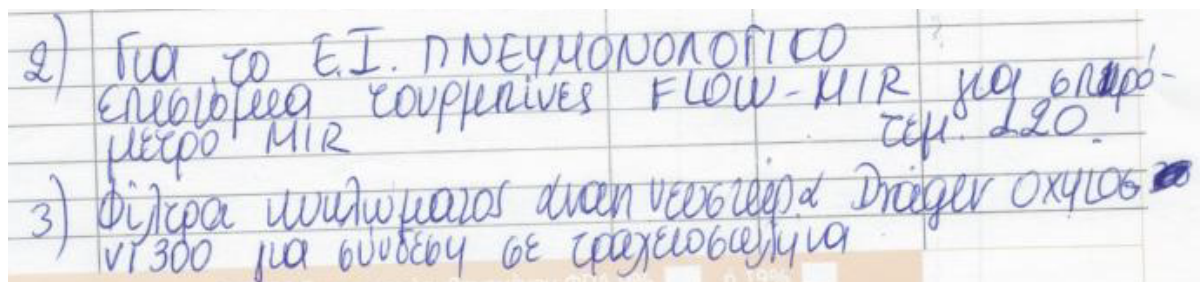 2) Για το Ε.Ι. ΠΝΕΥΜΟΝΟΛΟΓΙΚΟ
επιστόμια τουρμπίνες FLOW-MIR για σπιρό-
μετρο MIR τεμ. 220.
3) Φίλτρα κυκλώματος αναπνευστήρα Dräger oxylog
VT300 για σύνδεση σε τραχειοσωλήνα